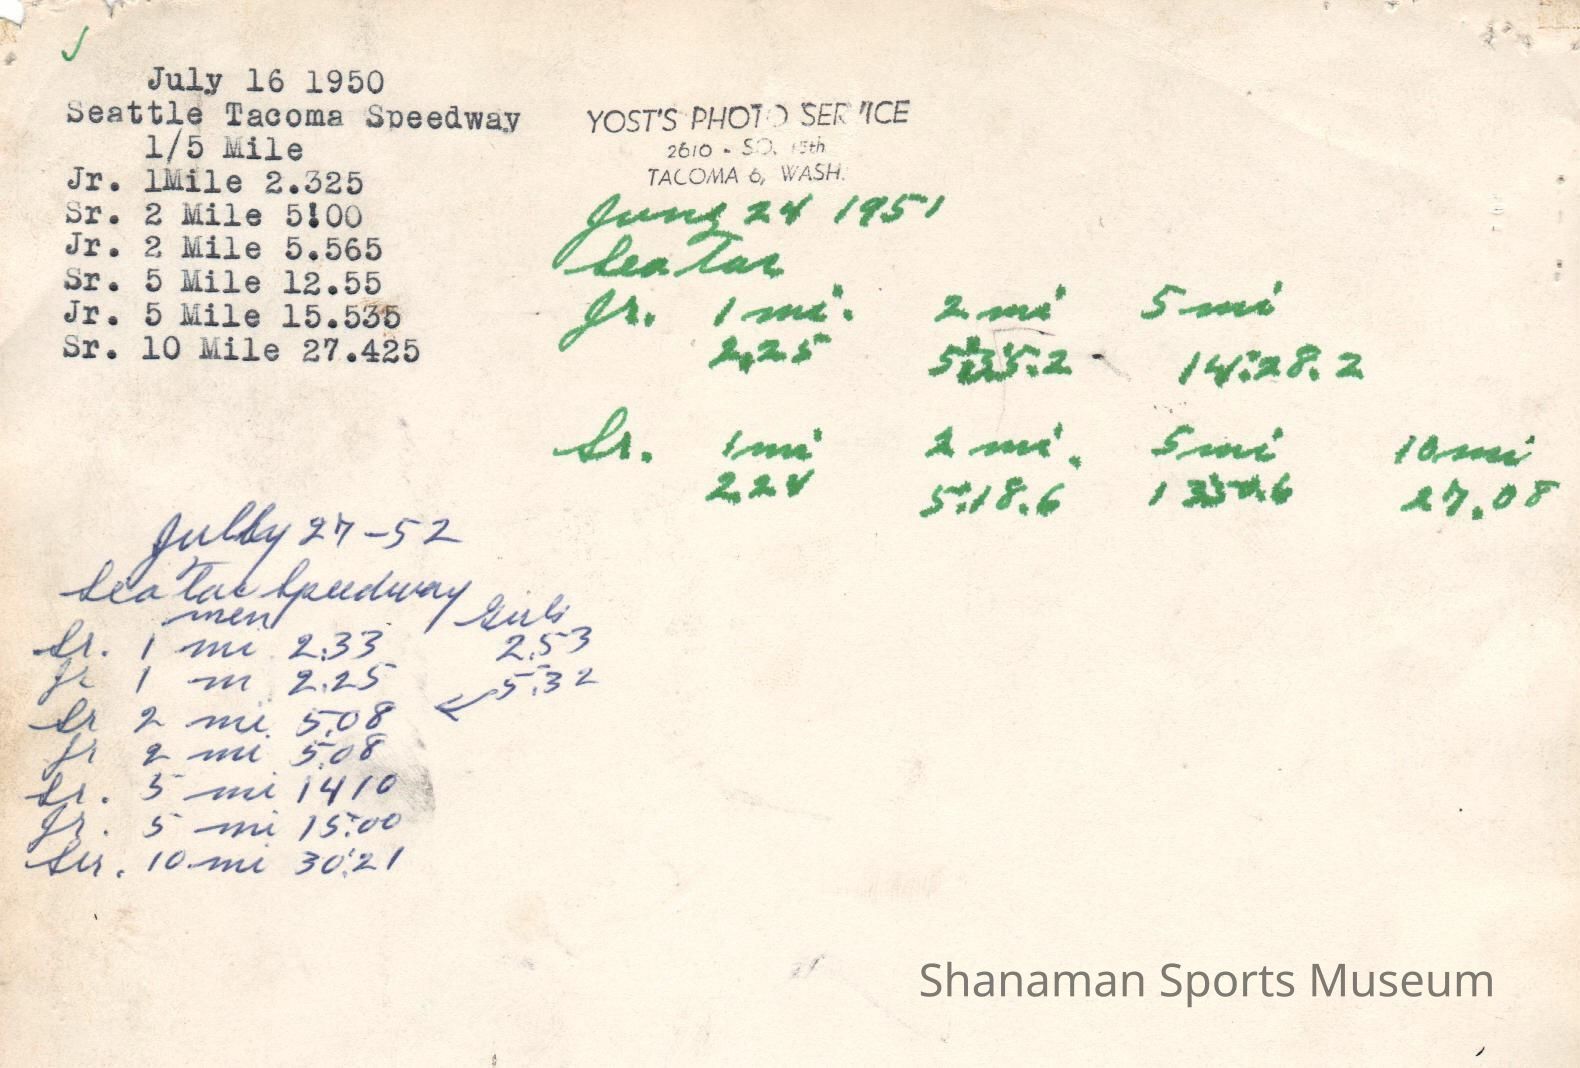 July 16 1950
Seattle Tacoma Speedway
1/5 Mile
Jr. 1Mile 2.325
Sr. 2 Mile 5:00
Jr. 2 Mile 5.565
Sr. 5 Mile 12.55
Jr. 5 Mile 15.535
Sr. 10 Mile 27.425
YOST'S PHOTO SERVICE
2610 - SO. 15th
TACOMA 6, WASH.
June 24 1951
Sea Tac
Jr. 1 mi. 2 mi 5 mi
2.25 5:35.2 14:28.2
Sr. 1 mi 2 mi. 5 mi 10 mi
2.24 5:18.6 27.08
27-52
Sea Tac Speedway
men Girls
Sr. 1 mi 2:33 2:53
Jr 1 m 2:25 5:32
Sr 2 mi. 5:08
Jr 2 mi 5:08
Sr. 5 mi 1410
Jr. 5 mi 15:00
Ser. 10 mi 30:21
Shanaman Sports Museum